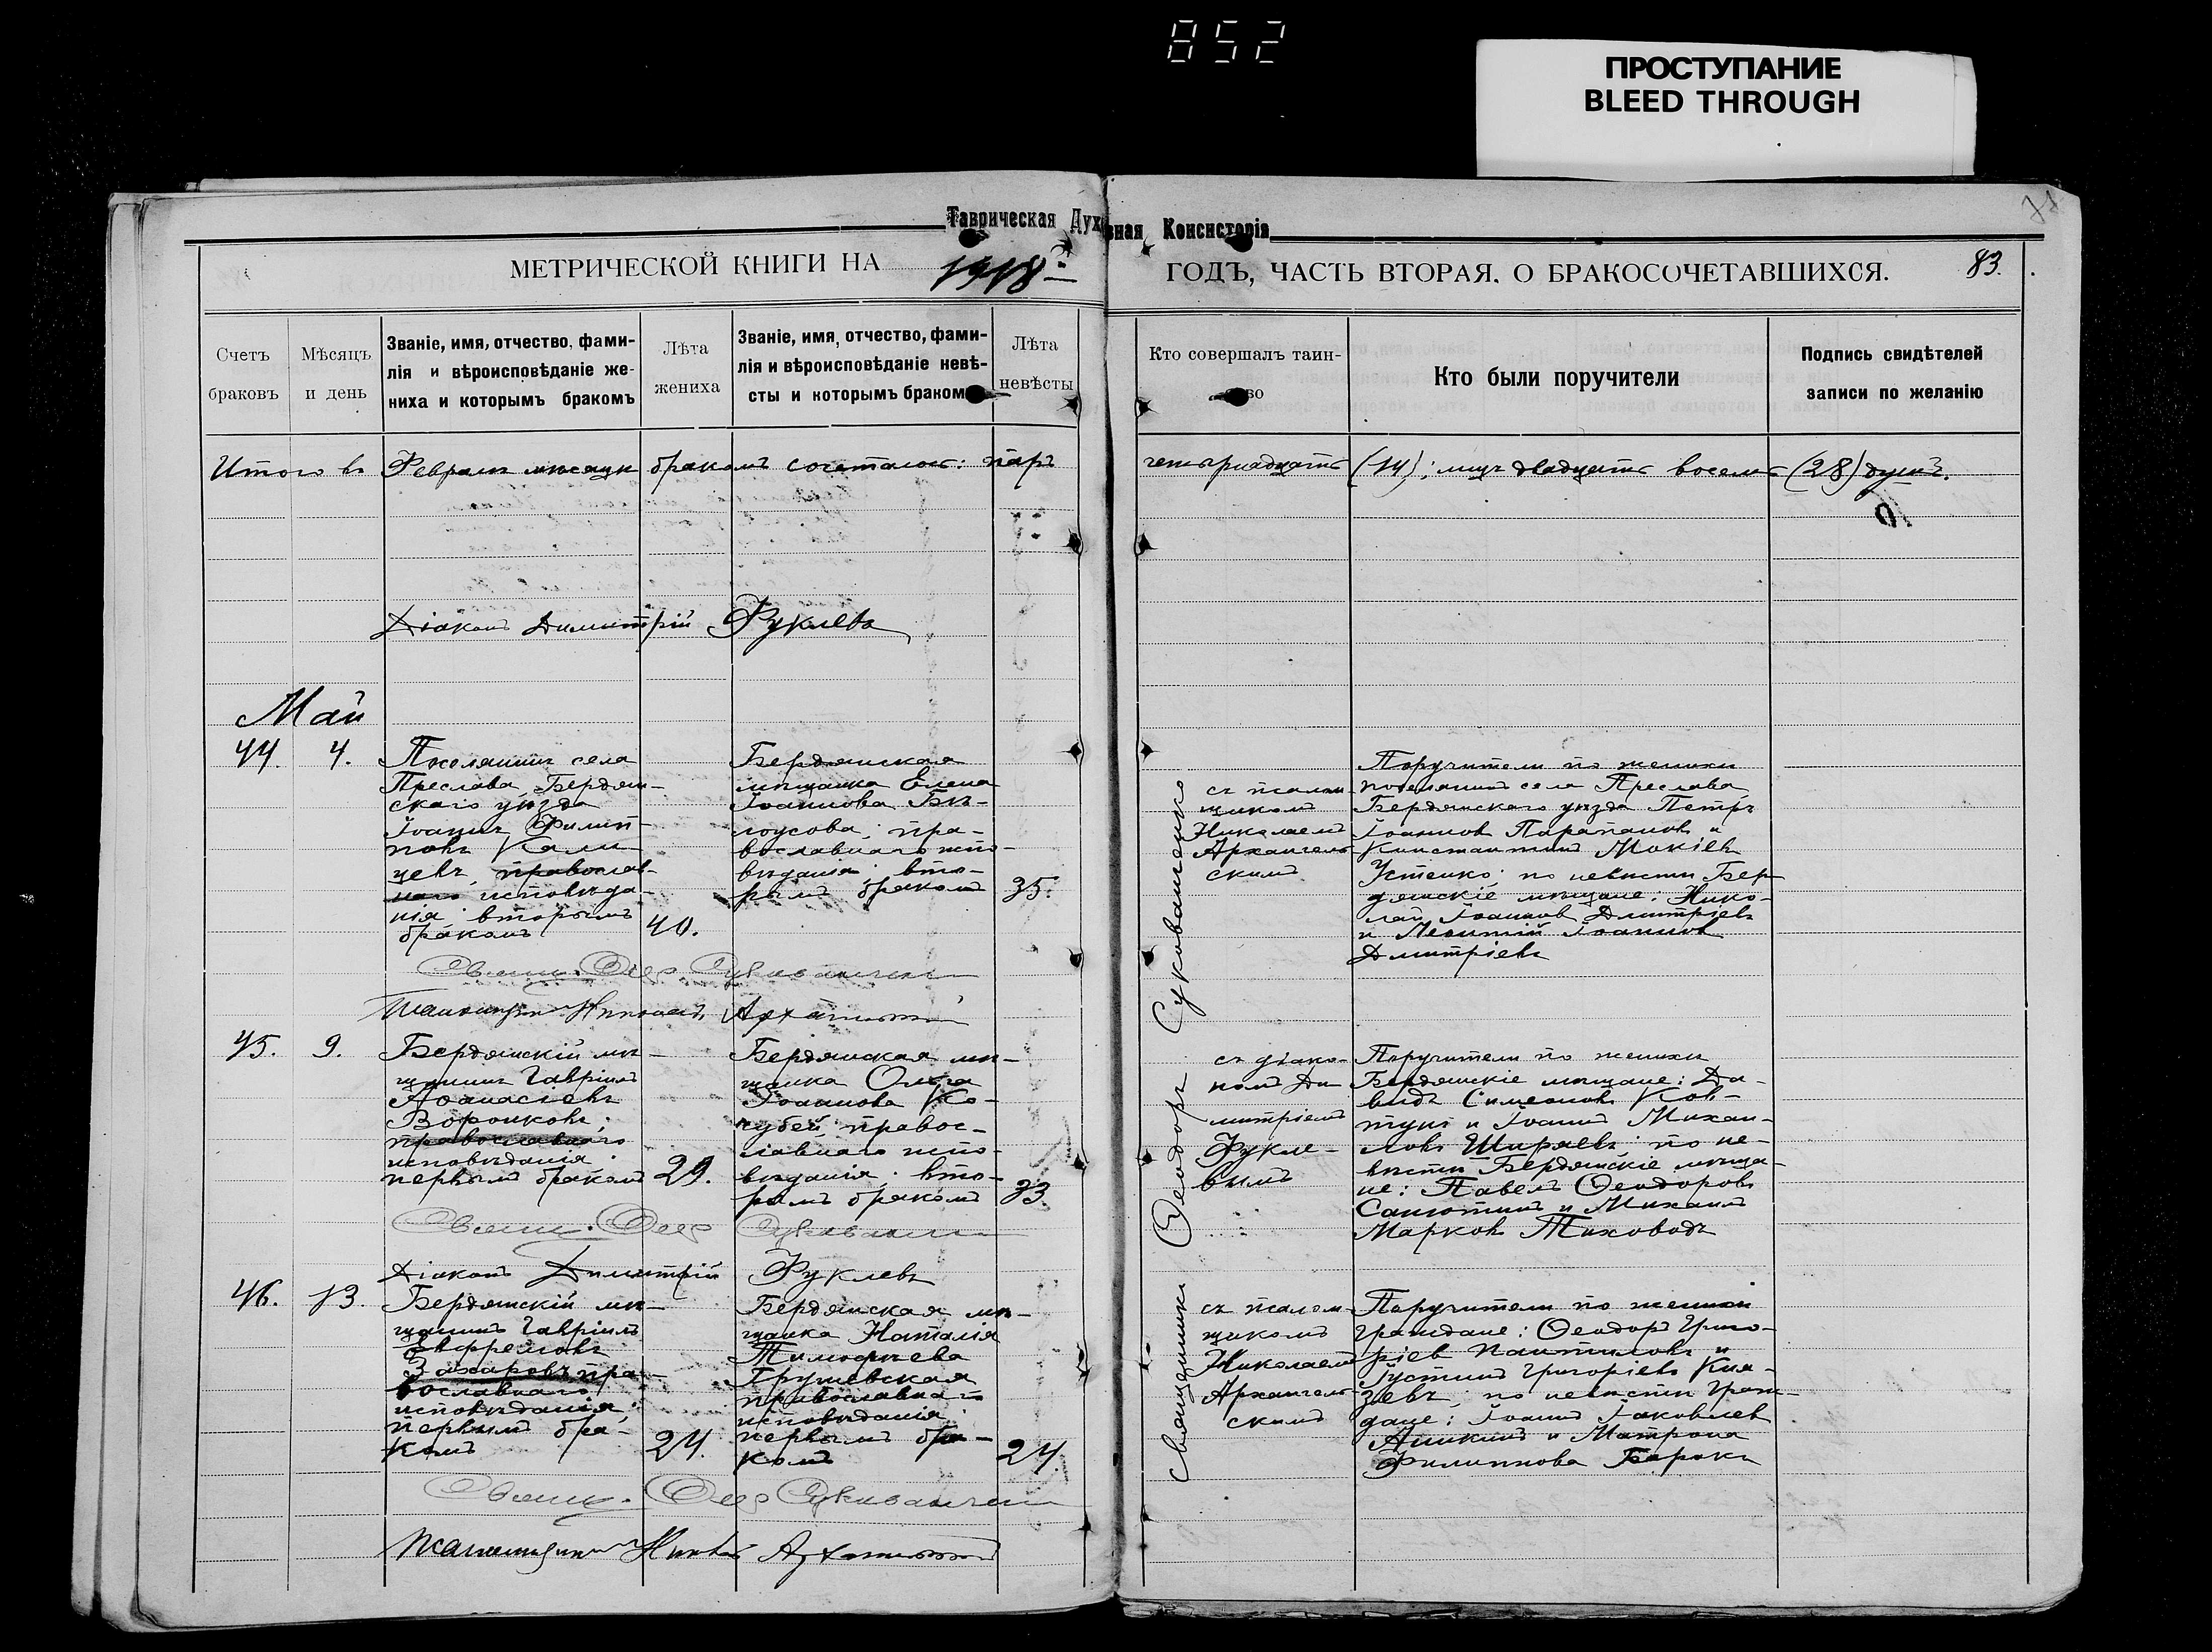 852
ПРОСТУПАНИЕ
BLEED THROUGH
Таврическая Духовная Консисторія
МЕТРИЧЕСКОЙ КНИГИ НА 1918 ГОДЪ, ЧАСТЬ ВТОРАЯ, О БРАКОСОЧЕТАВШИХСЯ.
83.
Счетъ браковъ
Мѣсяцъ и день
Званіе, имя, отчество, фами-
лія и вѣроисповѣданіе же-
ниха и которымъ бракомъ
Лѣта жениха
Званіе, имя, отчество, фами-
лія и вѣроисповѣданіе невѣ-
сты и которымъ бракомъ
Лѣта невѣсты
Кто совершалъ таин-
Кто были поручители
Подпись свидѣтелей
записи по желанію
Итого въ Февралѣ мѣсяцѣ бракомъ сочеталось: паръ четырнадцать (14); лицъ двадцать восемь (28) душъ.
Діаконъ Димитрій Фуклевъ
Май
44.
4.
Поселянинъ села
Преслава, Бердян-
скаго уѣзда
Іоаннъ Филип-
повъ Кали-
цевъ, православ-
наго исповѣда-
нія, вторымъ
бракомъ
40.
Бердянская
мѣщанка Елена
Іоаннова Бѣ-
лоусова, пра-
вославнаго испо-
вѣданія, вто-
рымъ бракомъ
35.
съ псалом-
щикомъ
Николаемъ
Архангель-
скимъ
Поручители по женихѣ
поселяне села Преслава,
Бердянскаго уѣзда Петръ
Іоанновъ Парапановъ и
Константинъ Мокіевъ
Устенко; по невѣстѣ Бер-
дянскіе мѣщане: Нико-
лай Іоанновъ Дмитріевъ
и Леонтій Іоанновъ
Дмитріевъ
Свящ. Ѳеод. Сукованченко
Псаломщикъ Николай Архангельскій
45.
9.
Бердянскій мѣ-
щанинъ Гавріилъ
Аѳанасіевъ
Воронковъ,
православнаго
исповѣданія,
первымъ бракомъ
29.
Бердянская мѣ-
щанка Ольга
Іоаннова Ко-
чубей, правос-
лавнаго испо-
вѣданія, вто-
рымъ бракомъ
33.
съ діако-
номъ Ди-
митріемъ
Фукле-
вымъ
Поручители по женихѣ
Бердянскіе мѣщане: Да-
видъ Симеоновъ Ков-
тунъ и Іоаннъ Михаи-
ловъ Ширяевъ; по не-
вѣстѣ Бердянскіе мѣща-
не: Павелъ Ѳеодоровъ
Санютинъ и Михаилъ
Марковъ Тиховодъ
Свящ. Ѳеод. Сукованченко
Діаконъ Димитрій Фуклевъ
46.
13.
Бердянскій мѣ-
щанинъ Гавріилъ
Ефремовъ
Захаровъ, пра-
вославнаго
исповѣданія,
первымъ бра-
комъ
24.
Бердянская мѣ-
щанка Наталія
Тимофѣева
Грушевская
православнаго
исповѣданія
первымъ бра-
комъ
24.
съ псалом-
щикомъ
Николаемъ
Архангель-
скимъ
Поручители по женихѣ
граждане: Ѳеодоръ Григо-
ріевъ Пантиловъ и
Іустинъ Григоріевъ Кня-
зевъ; по невѣстѣ граж-
дане: Іоаннъ Іаковлев
Аникинъ и Матрона
Филиппова Баракъ
Свящ. Ѳеод. Сукованченко
Псаломщикъ Николай Архангельскій
Священникъ Ѳеодоръ Сукованченко